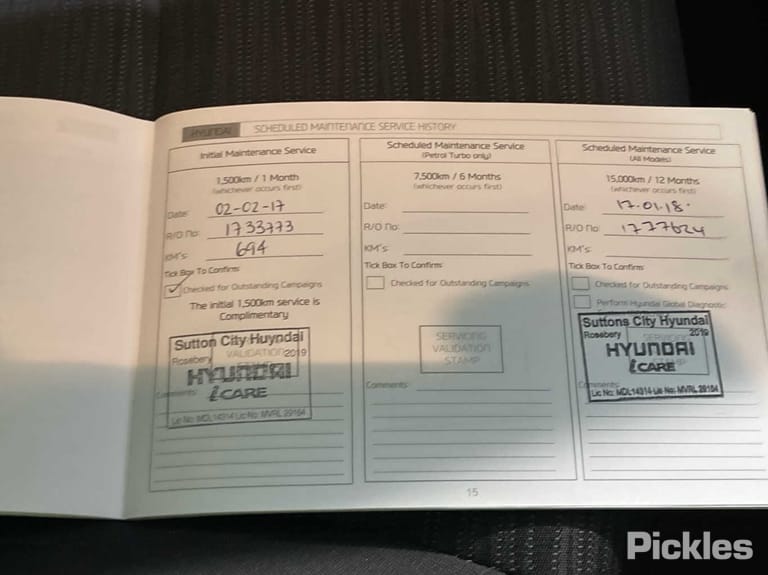 HYUNDAI SCHEDULED MAINTENANCE SERVICE HISTORY
Initial Maintenance Service
1,500km / 1 Month
(whichever occurs first)
Date: 02-02-17
R/O No: 1733773
KM's: 694
Tick Box To Confirm:
Checked for Outstanding Campaigns
The initial 1,500km service is
Complimentary
Sutton City Huyndai
Rosebery VALIDATION 2019
HYUNDAI
iCARE
Comments:
Lic No: MDL14314 Lic No: MVRL 29164
Scheduled Maintenance Service
(Petrol Turbo only)
7,500km / 6 Months
(whichever occurs first)
Date:
R/O No:
KM's:
Tick Box To Confirm:
Checked for Outstanding Campaigns
SERVICING
VALIDATION
STAMP
Comments:
Scheduled Maintenance Service
(All Models)
15,000km / 12 Months
(whichever occurs first)
Date: 17.01.18.
R/O No: 1777624
KM's:
Tick Box To Confirm:
Checked for Outstanding Campaigns
Perform Hyundai Global Diagnostic
Suttons City Hyundai
Rosebery 2019
HYUNDAI
iCARE
Comments:
Lic No: MDL14314 Lic No: MVRL 29164
15
Pickles